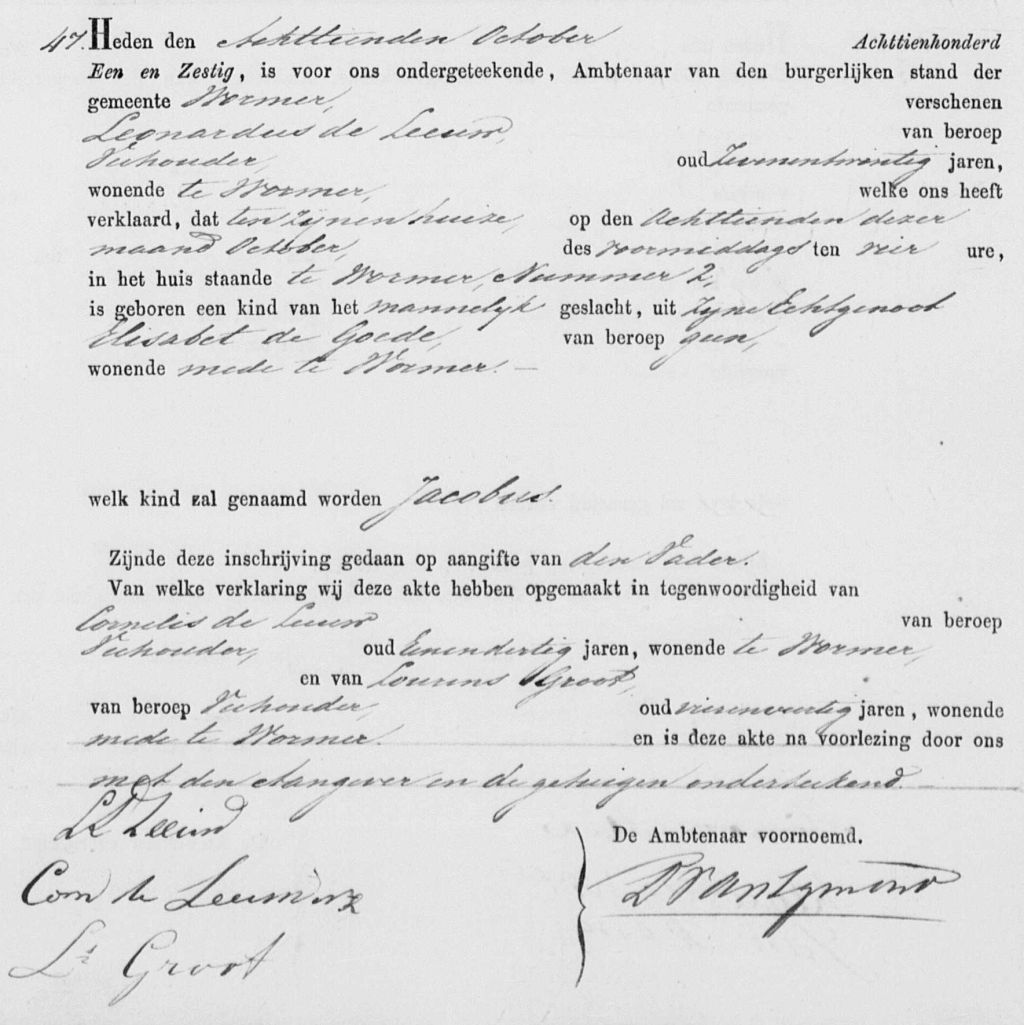 47. Heden den Achttienden October Achttienhonderd
Een en Zestig, is voor ons ondergeteekende, Ambtenaar van den burgerlijken stand der
gemeente Wormer, verschenen
Leonardus de Leeuw, van beroep
Veehouder, oud Zevenentwintig jaren,
wonende te Wormer, welke ons heeft
verklaard, dat ten zijnen huize, op den Achttienden dezer
maand October, des voormiddags ten vier ure,
in het huis staande te Wormer, Nummer 2,
is geboren een kind van het mannelijk geslacht, uit zijne Echtgenoot
Elisabet de Goede, van beroep geen,
wonende mede te Wormer. —
welk kind zal genaamd worden Jacobus.
Zijnde deze inschrijving gedaan op aangifte van den Vader.
Van welke verklaring wij deze akte hebben opgemaakt in tegenwoordigheid van
Cornelis de Leeuw van beroep
Veehouder, oud Eenendertig jaren, wonende te Wormer,
en van Lourens Groot,
van beroep Veehouder, oud vierenveertig jaren, wonende
mede te Wormer. en is deze akte na voorlezing door ons
met den Aangever en de getuigen onderteekend.
L D Leeuw
De Ambtenaar voornoemd.
Corn de Leeuw
Ls Groot